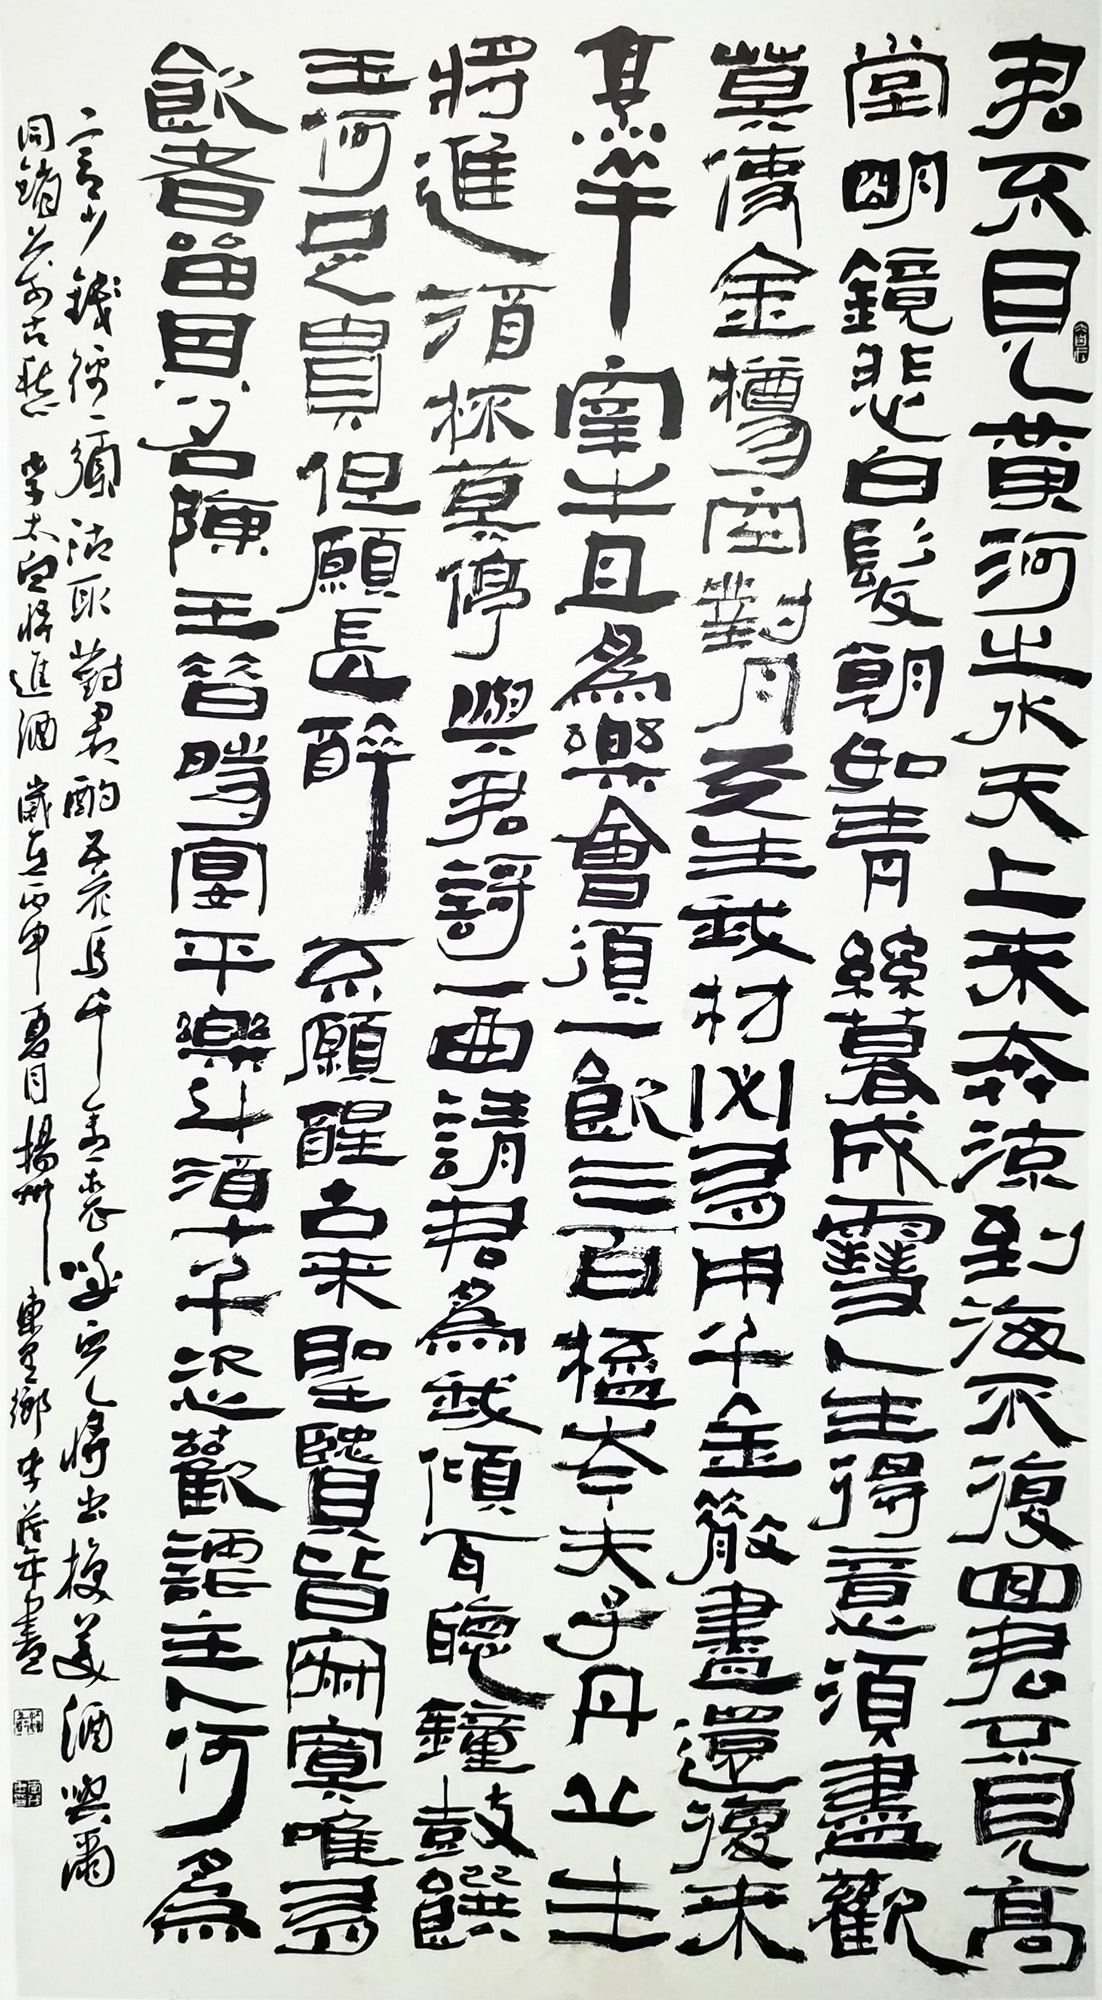 君不見黃河之水天上来奔流到海不復回君不見高
堂明鏡悲白髮朝如青絲暮成雪人生得意須盡歡
莫使金樽空對月天生我材必有用千金散盡還復来
烹羊宰牛且為樂會須一飲三百杯岑夫子丹丘生
將進酒杯莫停與君謌一曲請君為我傾耳聽鐘鼓饌
玉何足貴但願長醉不願醒古来聖賢皆寂寞唯有
飲者留其名陳王昔時宴平樂斗酒十千恣歡謔主人何為
言少錢徑須沽取對君酌五花馬千金裘呼兒將出換美酒與爾
同銷萬古愁 李太白將進酒 歲在丙申夏月揚州東里鄉李年書